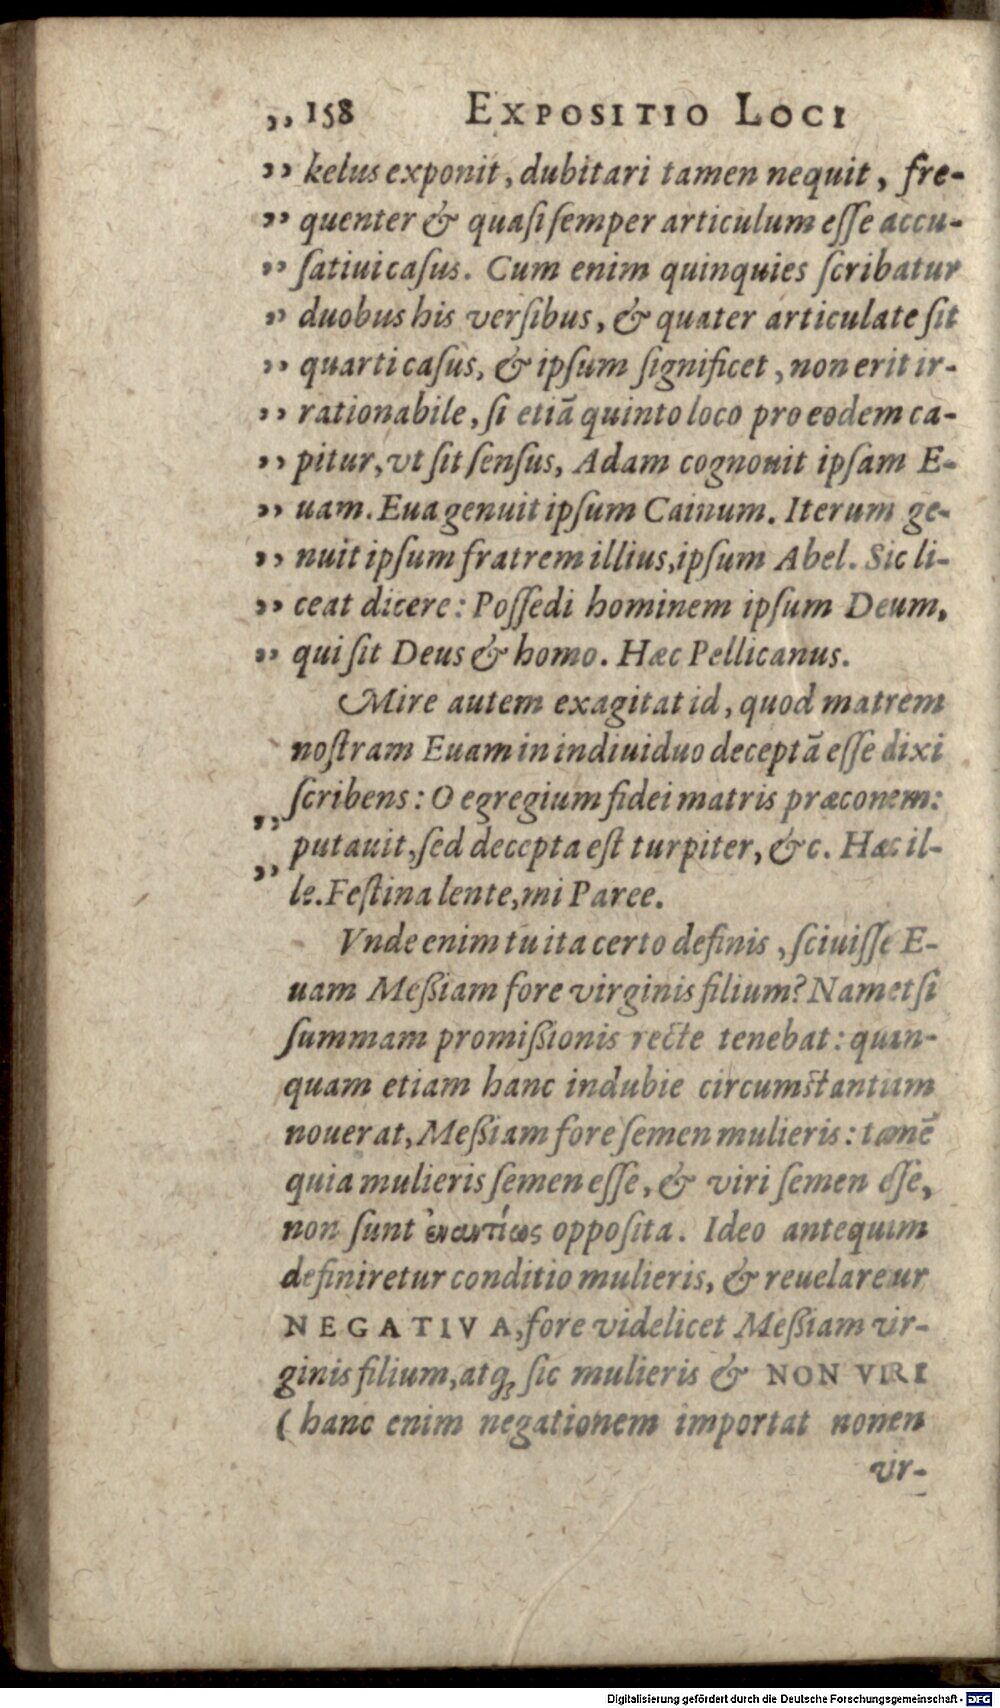 „ 158 EXPOSITIO LOCI
„ kelus exponit, dubitari tamen nequit, fre-
„ quenter & quasi semper articulum esse accu-
„ satiui casus. Cum enim quinquies scribatur
„ duobus his versibus, & quater articulate sit
„ quarti casus, & ipsum significet, non erit ir-
„ rationabile, si etiã quinto loco pro eodem ca-
„ pitur, vt sit sensus, Adam cognouit ipsam E-
„ uam. Eua genuit ipsum Cainum. Iterum ge-
„ nuit ipsum fratrem illius, ipsum Abel. Sic li-
„ ceat dicere: Possedi hominem ipsum Deum,
„ qui sit Deus & homo. Hæc Pellicanus.
Mire autem exagitat id, quod matrem
nostram Euam in indiuiduo deceptã esse dixi
scribens: O egregium fidei matris præconem:
„ putauit, sed decepta est turpiter, &c. Hæc il-
„ le. Festina lente, mi Paree.
Vnde enim tu ita certo definis, sciuisse E-
uam Meßiam fore virginis filium? Nam etsi
summam promißionis recte tenebat: quin-
quam etiam hanc indubie circumstantium
nouerat, Meßiam fore semen mulieris: tamẽ
quia mulieris semen esse, & viri semen esse,
non sunt ἐναντίως opposita. Ideo antequim
definiretur conditio mulieris, & reuelareur
NEGATIVA, fore videlicet Meßiam vir-
ginis filium, atq; sic mulieris & NON VIRI
(hanc enim negationem importat nonen
vir-
Digitalisierung gefördert durch die Deutsche Forschungsgemeinschaft - DFG